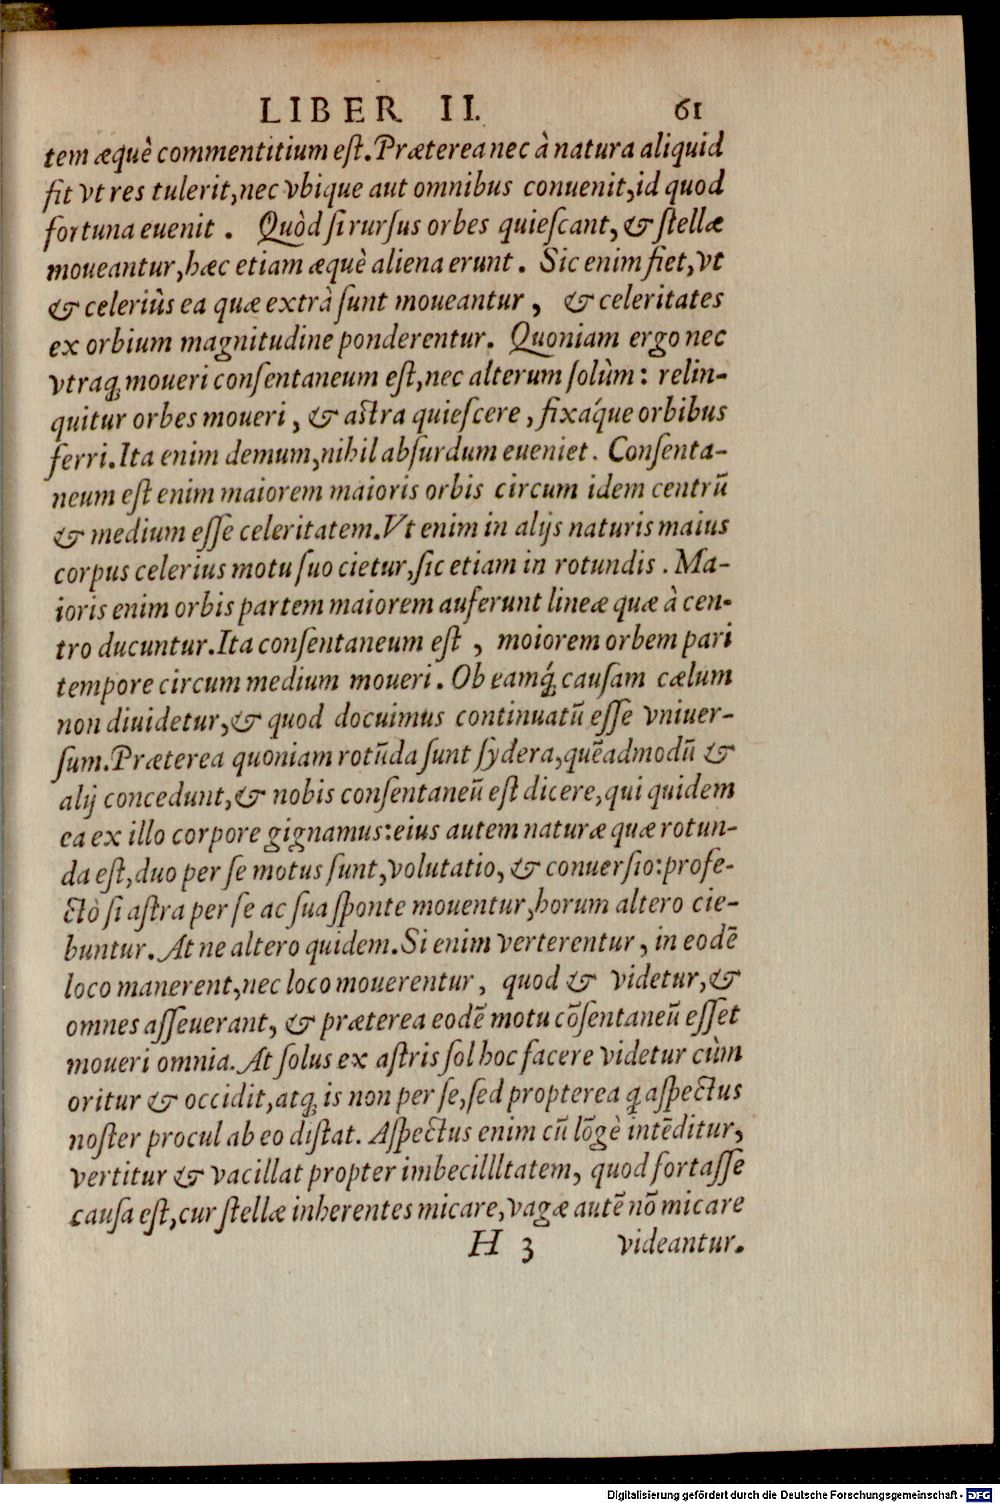 LIBER II. 61
tem æquè commentitium eſt. Præterea nec à natura aliquid
fit vt res tulerit, nec vbique aut omnibus conuenit, id quod
fortuna euenit . Quòd ſi rurſus orbes quieſcant, & ſtellæ
moueantur, hæc etiam æquè aliena erunt . Sic enim fiet, vt
& celeriùs ea quæ extrà ſunt moueantur , & celeritates
ex orbium magnitudine ponderentur. Quoniam ergo nec
vtraq; moueri conſentaneum eſt, nec alterum ſolùm : relin-
quitur orbes moueri , & aſtra quieſcere , fixáque orbibus
ferri. Ita enim demum, nihil abſurdum eueniet . Conſenta-
neum eſt enim maiorem maioris orbis circum idem centrũ
& medium eſſe celeritatem. Vt enim in alijs naturis maius
corpus celerius motu ſuo cietur, ſic etiam in rotundis . Ma-
ioris enim orbis partem maiorem auferunt lineæ quæ à cen-
tro ducuntur. Ita conſentaneum eſt , moiorem orbem pari
tempore circum medium moueri . Ob eamq́; cauſam cælum
non diuidetur, & quod docuimus continuatũ eſſe vniuer-
ſum. Præterea quoniam rotũda ſunt ſydera, quẽadmodũ &
alij concedunt, & nobis conſentaneũ eſt dicere, qui quidem
ea ex illo corpore gignamus: eius autem naturæ quæ rotun-
da eſt, duo per ſe motus ſunt, volutatio, & conuerſio: profe-
ctò ſi aſtra per ſe ac ſua ſponte mouentur, horum altero cie-
buntur. At ne altero quidem. Si enim verterentur , in eodẽ
loco manerent, nec loco mouerentur , quod & videtur, &
omnes aſſeuerant, & præterea eodẽ motu cõſentaneũ eſſet
moueri omnia. At ſolus ex aſtris ſol hoc facere videtur cùm
oritur & occidit, atq; is non per ſe, ſed propterea ꝙ aſpectus
noſter procul ab eo diſtat. Aſpectus enim cũ lõgè intẽditur,
vertitur & vacillat propter imbecillltatem, quod fortaſſe
cauſa eſt, cur ſtellæ inherentes micare, vagæ autẽ nõ micare
H 3 videantur.
Digitalisierung gefördert durch die Deutsche Forschungsgemeinschaft - DFG